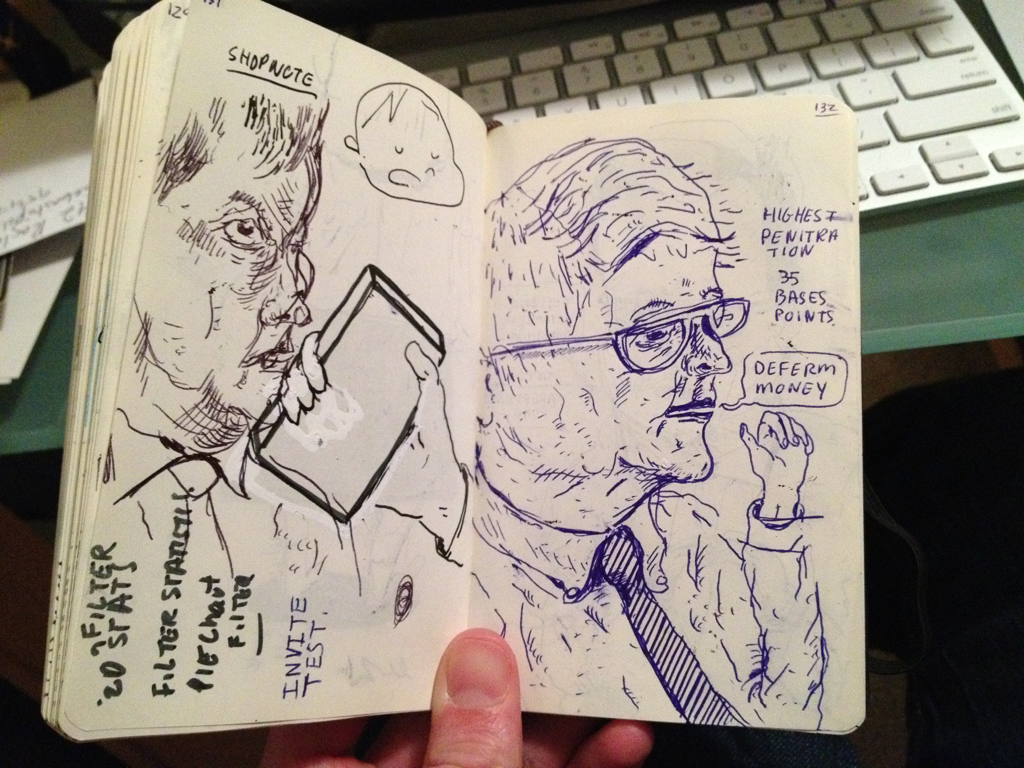 SHOPNOTE
FILTER
20 STATS
FILTER STATISTICS
PIE CHART
FILTER
INVITE
TEST.
132
HIGHEST
PENITRA
TION
35
BASES
POINTS
DEFERM
MONEY